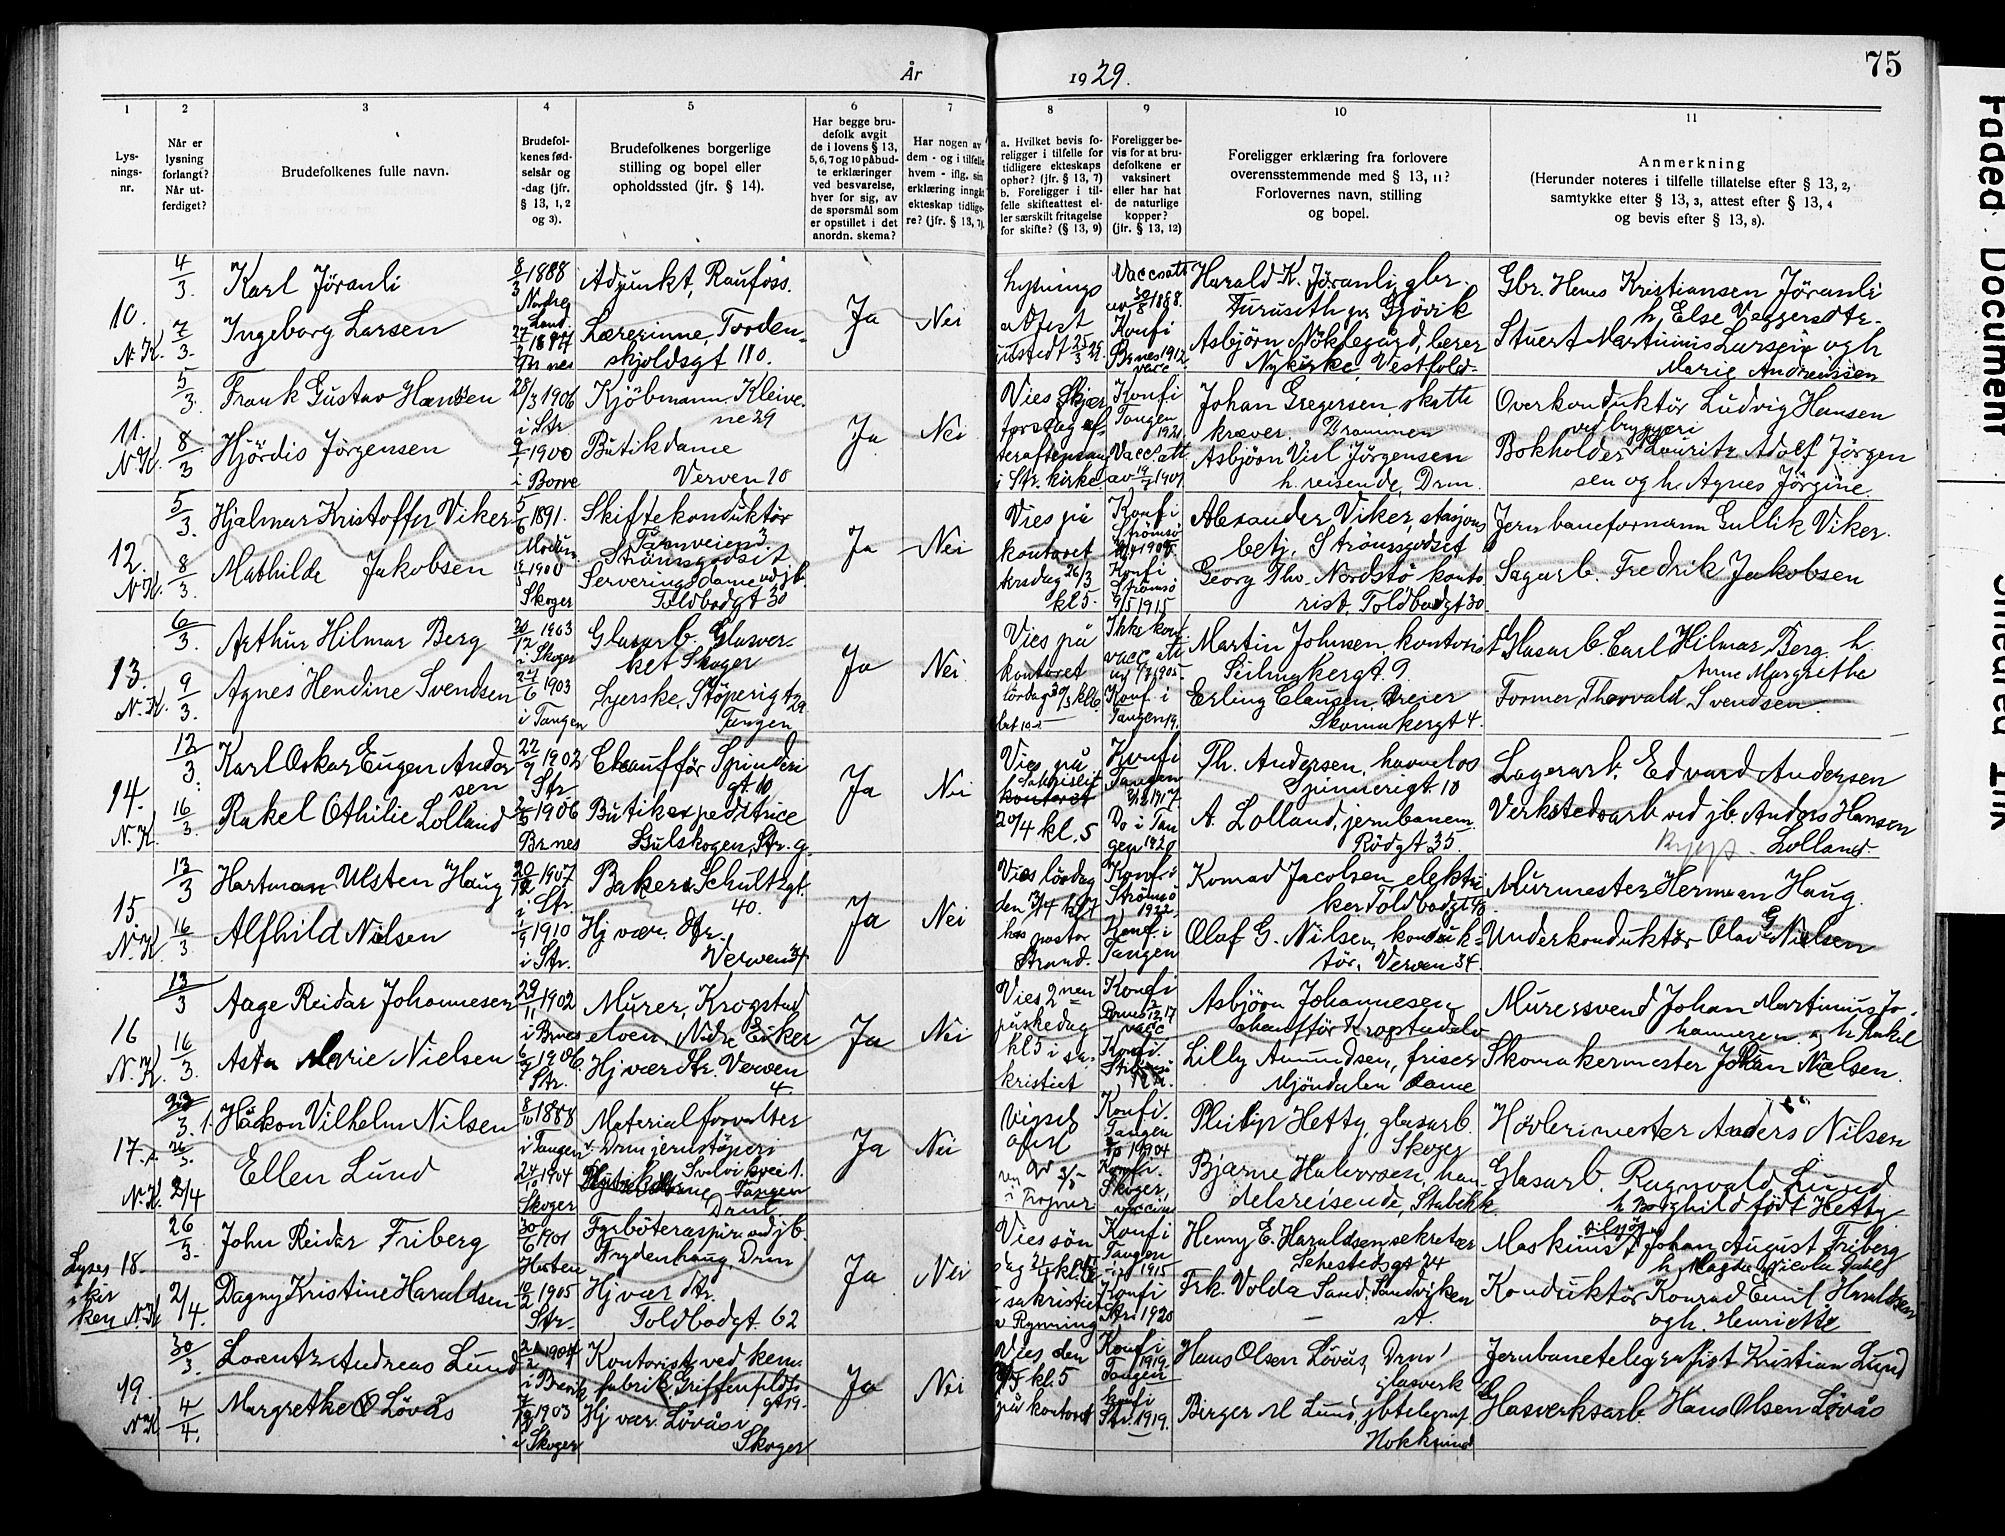 75
År 1929.
1 2 3 4 5 6 7 8 9 10 11
Lys-
nings-
nr.
Når er
lysning
forlangt?
Når ut-
ferdiget?
Brudefolkenes fulle navn.
Brudefol-
kenes fød-
selsår og
-dag (jfr.
§ 13, 1, 2
og 3).
Brudefolkenes borgerlige
stilling og bopel eller
opholdssted (jfr. § 14).
Har begge bru-
defolk avgit
de i lovens § 13,
5, 6, 7 og 10 påbud-
te erklæringer
ved besvarelse,
hver for sig, av
de spørsmål som
er opstillet i det
anordn. skema?
Har nogen av
dem - og i tilfelle
hvem - iflg. sin
erklæring inngåt
ekteskap tidlige-
re? (jfr. § 13, 7).
a. Hvilket bevis fo-
religger i tilfelle for
tidligere ekteskaps
ophør? (jfr. § 13, 7)
b. Foreligger i til-
felle skifteattest el-
ler særskilt fritagelse
for skifte? (§ 13, 9)
Foreligger be-
vis for at bru-
defolkene er
vaksinert
eller har hat
de naturlige
kopper?
(jfr. § 13, 12)
Foreligger erklæring fra forlovere
overensstemmende med § 13, 11?
Forlovernes navn, stilling
og bopel.
Anmerkning
(Herunder noteres i tilfelle tillatelse efter § 13, 2,
samtykke efter § 13, 3, attest efter § 13, 4
og bevis efter § 13, 8).
10. N.K.
4/3. 7/3.
Karl Jöranli
Ingeborg Larsen
8/3 1888
Nordre
Land.
Adjunkt, Raufoss.
Lærerinne, Torden-
skjoldsgt 110.
Ja Nei
Lysnings
attest
utstedt 25/3 29.
Vaccsatt
1888.
Konfi
Brnes 1912
vacc
Harald K. Jöranli, gbr.
Furuseth pr Gjövik
Asbjörn Nöklegård, lærer
Nykirke, Vestfold
Gbr. Hans Kristiansen Jöranli
h. Else
Stuert Martinius Larsen og h
Marie Andreassen
11. N.K.
5/3. 8/3
Frank Gustav Hansen
Hjördis Jörgensen
28/3 1906
i Str.
1900
i Borre
Kjöbmann. Kleive-
ne 29
Butikdame
Verven 10
Ja Nei
Vies Skjær
torsdag ef-
i Str. kirke
Konfi
Tangen
1921
Vaccsatt
Johan Gregersen, skatte
kræver. Drammen
Asbjörn Viel Jörgensen
h. reisende, Drm.
Overkonduktör Ludvig Hansen
ved bryggeri
Bokholder Lauritz Adolf Jörgen
sen og h. Agnes Jörgine.
12. N.K.
5/3. 8/3
Hjalmar Kristoffer Viker
Mathilde Jakobsen
5/6 1891.
Modum
1900
Skoger
Skiftekonduktör
Tårnveien 3.
Strömsgodset
Serveringsdame
Toldbodgt 30
Ja Nei
Vies på
kontoret
26/3
kl 5.
Konfi
Strömsö
Konfi
Strömsö
9/5 1915
Alexander Viker, stasjons
betj. Strömsgodset
Georg Thv. Nordstö konto
rist, Toldbodgt 30.
Jernbaneformann Gullik Viker.
Sagarb. Fredrik Jakobsen
13. N.K.
6/3. 9/3.
Arthur Hilmar Berg
Agnes Hendine Svendsen
20/12 1903
i Skoger
27/6 1903
i Tangen
Glasarb. Glasver-
ket Skoger
Syerske, Stöperigt 29
Tangen
Ja Nei
Vies på
kontoret
lördag 30/3 kl 6.
Ikke konf.
vacc. att
Konf. i
Tangen 19.
Martin Johnsen, kontorist
Seilmakergt 9.
Erling Clausen, dreier
Skomakergt 4.
Glasarb. Carl Hilmar Berg. h.
Anne Margrethe
Former, Thorvald Svendsen.
14. N.K.
12/3. 16/3.
Karl Oskar Eugen Ander
sen
Rakel Othilie Lolland
22/9 1902
Str
1906
Brnes
Chauffför Spinderi
gt. 10
Butikexpeditrice
Gulskogen, Str. g.
Ja Nei
Vies på
kontoret
20/4 kl. 5
Konfi
Tangen
1917
Do i Tan
gen 1920
Th. Andersen, havnelos
Spinnerigt 10
A. Lolland, jernbanem.
Rödgt 35.
Lagerarb. Edvard Andersen
Verkstedsarb. ved jb. Anders Hansen
Lolland.
15. N.K.
13/3 16/3
Hartman Ulsten Haug
Alfhild Nilsen
20/12 1907
i Str.
1/9 1910
i Str.
Baker, Schultzgt.
40.
Hj.vær. dtr.
Verven 34
Ja Nei
Vies lördag
den 13/4
hos pastor
Strand.
Konfi
Strömsö
1922
Konf. i
Tangen
Konrad Jacobsen elektri
ker Toldbodgt 48
Olaf G. Nilsen, konduk-
tör, Verven 34.
Murmester Herman Haug.
Underkonduktör Olav G Nielsen
16 N.K.
13/3 16/3.
Aage Reidar Johannesen
Asta Marie Nielsen
29/11 1902
i Brnes
1906
Str.
Murer, Krogstad
elven, Nedre Eiker
Hj vær dtr. Verven
4.
Ja Nei
Vies 2nen
påskedag
kl 5 i sa-
kristiet
Konfi
Brnes
vacc
Konfi.
Strömsö
Asbjörn Johannesen
Schauffför Krogstadelv
Lilly Amundsen, friser
Mjöndalen dame
Murersvend Johan Martinius Jo-
hannesen. h. Rakel
Skomakermester Johan Nielsen.
17. N.K.
3. 2/4
Håkon Vilhelm Nilsen
Ellen Lund
8/10 1888
i Tangen
24/10 1904
Skoger
Materialforvalter
v. Drm jernstöperi
Svelviksvei 1.
Tangen
Drm.
Ja Nei
Vigsel
Konfi.
Tangen
1904
Konfi.
Skoger,
Philip Hetty, glasarb.
Skoger
Bjarne Halvorsen, han-
delsreisende, Stabekk.
Hövlerimester Anders Nilsen
Glasarb. Ragnvald Lund
h Borghild född Hetty
Lyses 18.
i kir
ken N.K
26/3. 2/4.
John Reidar Friberg
Dagny Kristine Haraldsen
30/6 1901
Horten
1905
Str.
Fyrböteraspir. ved jb.
Frydenhaug, Drm
Hj vær dtr.
Toldbodgt. 62
Ja Nei
Vies søn
dag
i sakristiet
Konfi
Tangen
1915
Konfi
Str. 1920
Henry E. Haraldsen, sekretær
Sehestedsgt 24
Frk. Volda Sand, Sandviken
st.
Maskinist Johan August Friberg
h. Magda Nicoline Dahl
Konduktör Konrad Emil Haraldsen
og h. Henriette
19. N.K.
30/3. 4/4.
Lorentz Andreas Lund
Margrethe O Lövås
1904
1903
i Skoger
Kontorist ved kem.
fabrik, Griffenfeldts
gt 19.
Hj vær. Lövås i
Skoger
Ja Nei
Vies den
kl. 5
på kontoret
Konfi
1919.
Tangen
Konfi
Str. 1919.
Hans Olsen Lövås, Drm's
glasverk
Birger M Lund, jbtelegraf
Hokksund
Jernbanetelegrafist Kristian Lund
Glasverksarb. Hans Olsen Lövås
Faded Document
Smeared Ink